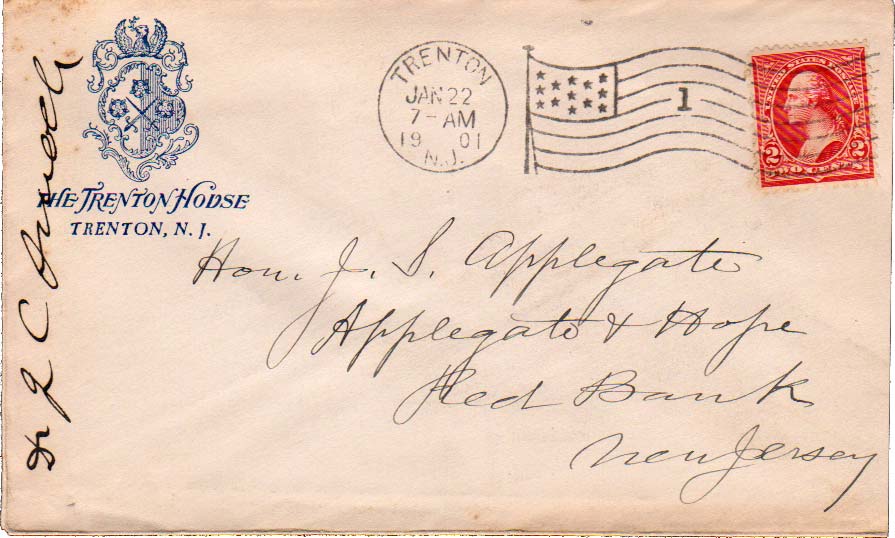 THE TRENTON HOUSE
TRENTON, N. J.
TRENTON
JAN 22
7-AM
1901
N.J.
1
UNITED STATES POSTAGE
2 2
TWO CENTS
Hon. J. S. Applegate
Applegate & Hope
Red Bank
New Jersey
Dr J C